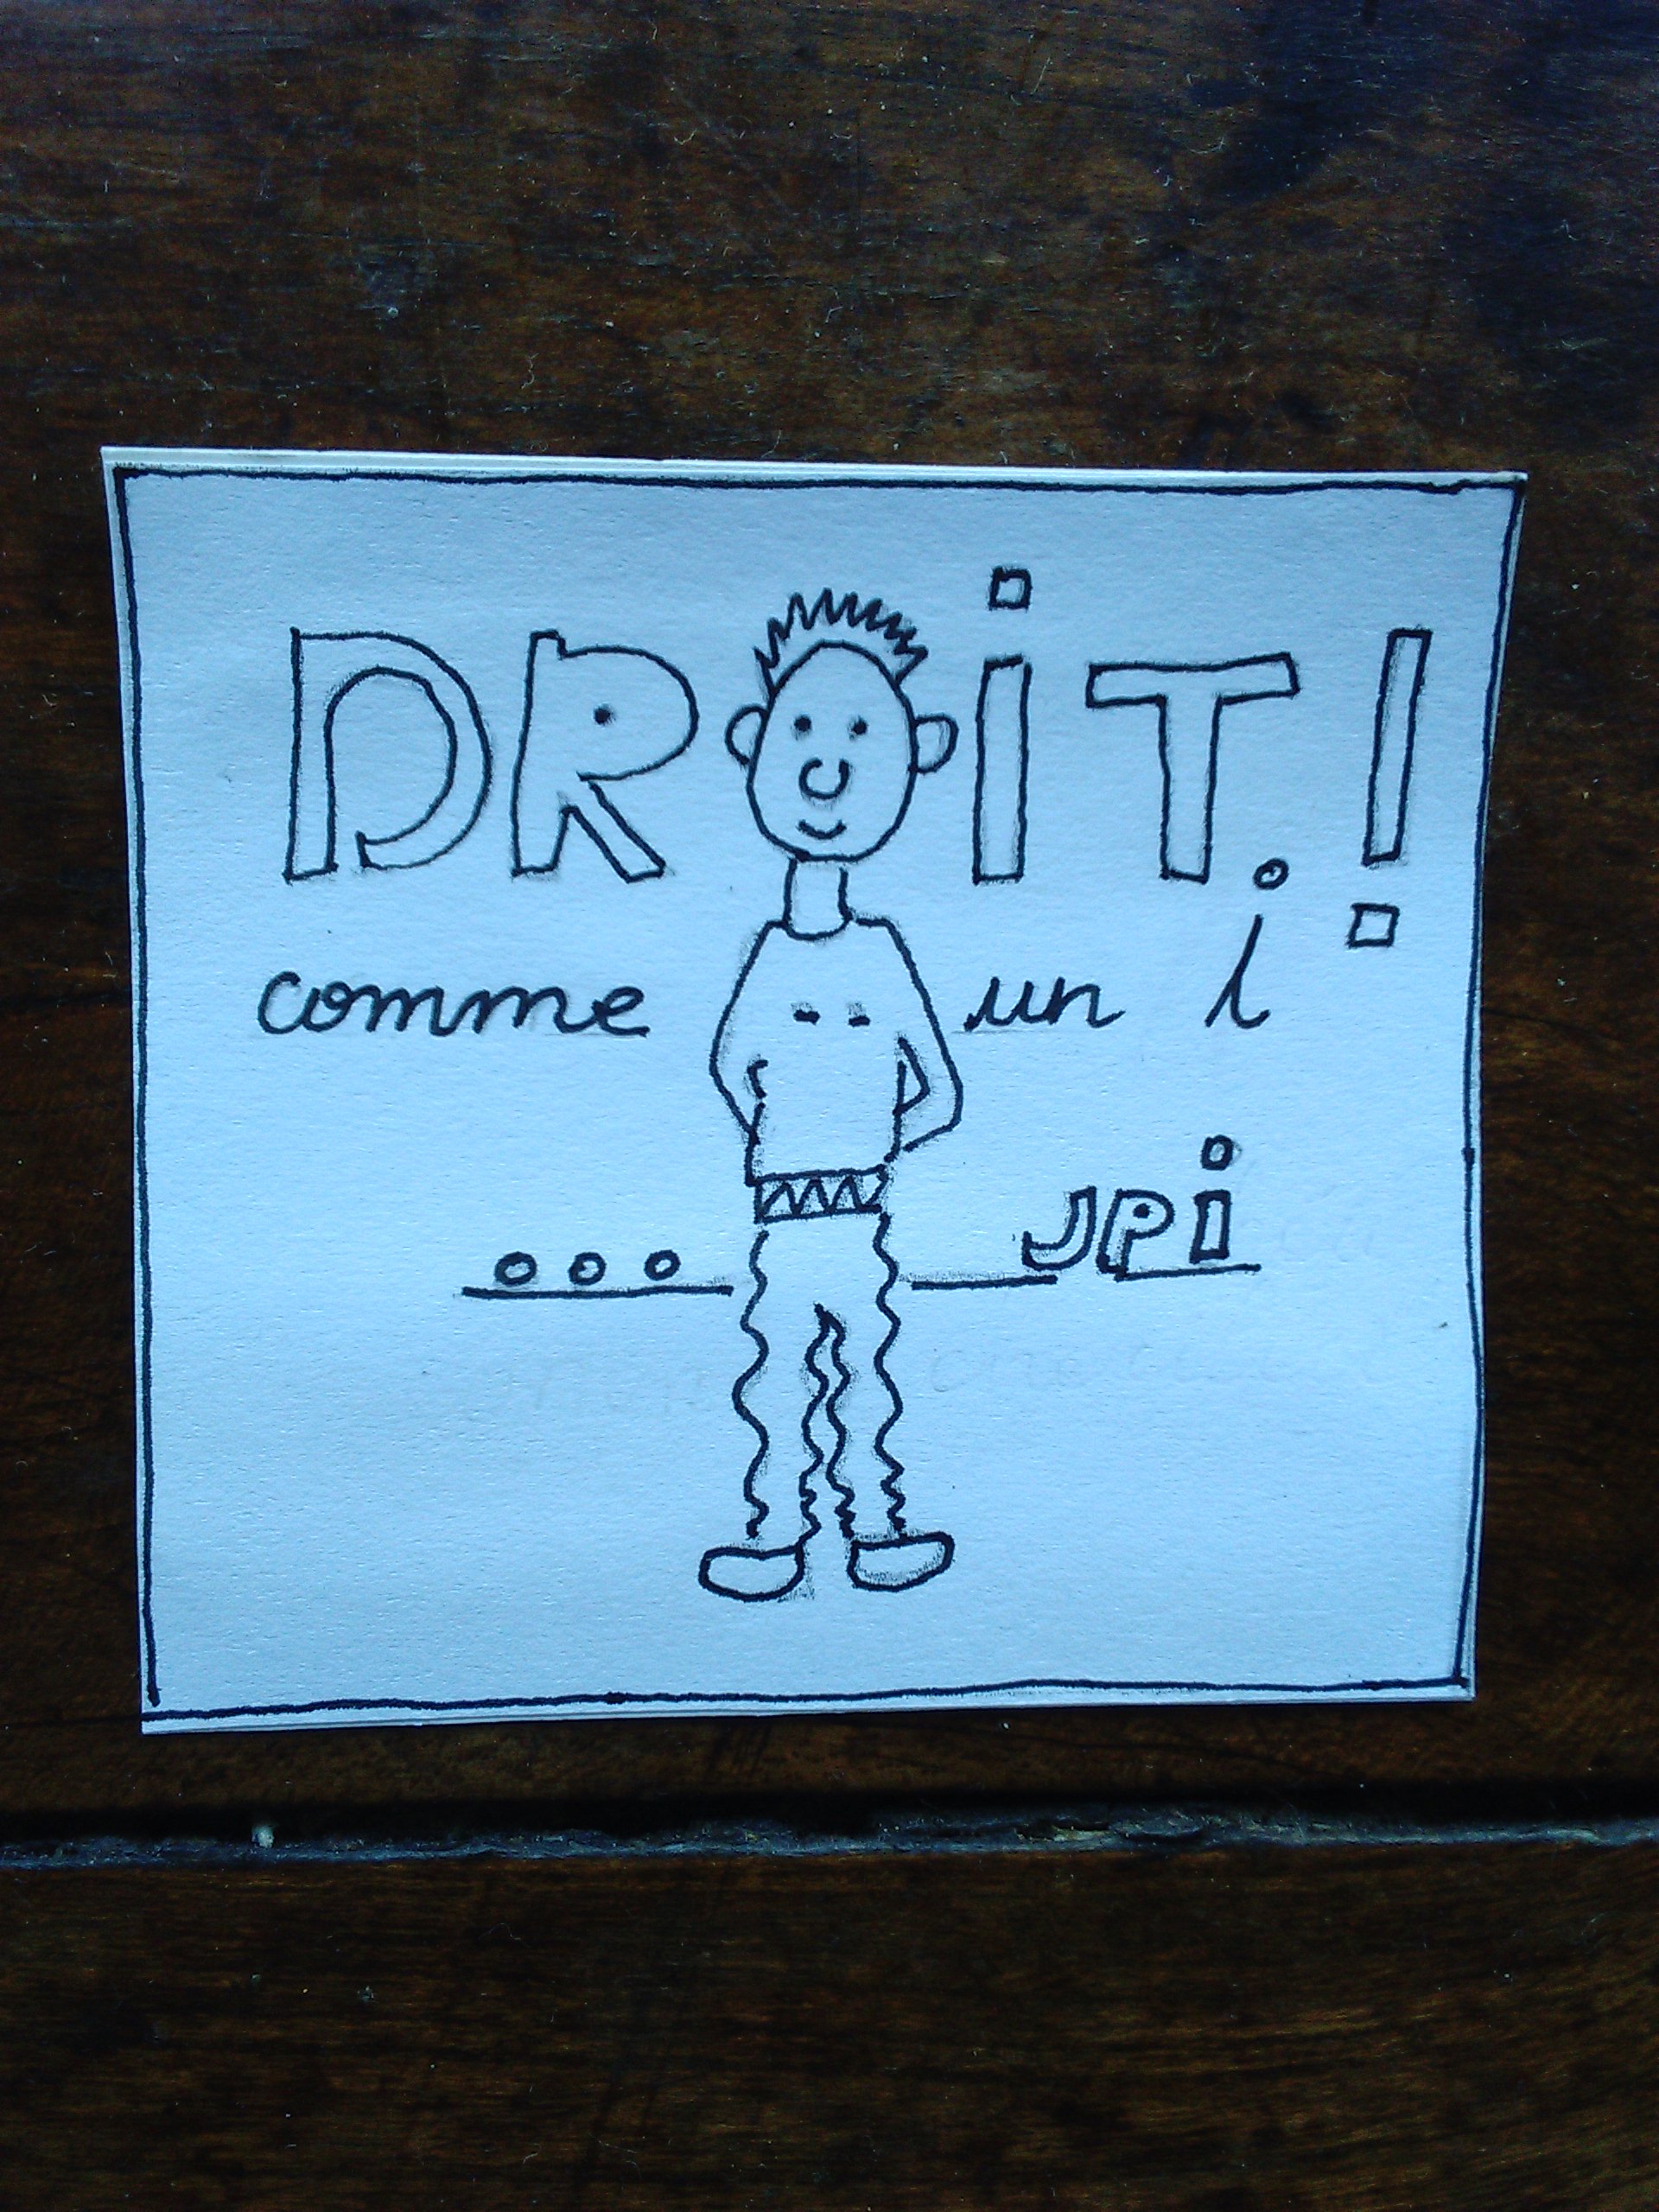 DROiT.!
comme un i
... JPi